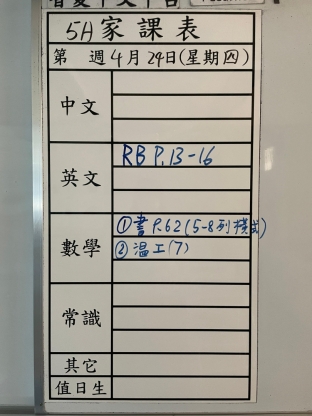 5H 家課表
第 週 4月29日(星期四)
中文
英文
RB P.13-16
數學
①書P.62(5-8列橫式)
②溫工(7)
常識
其它
值日生